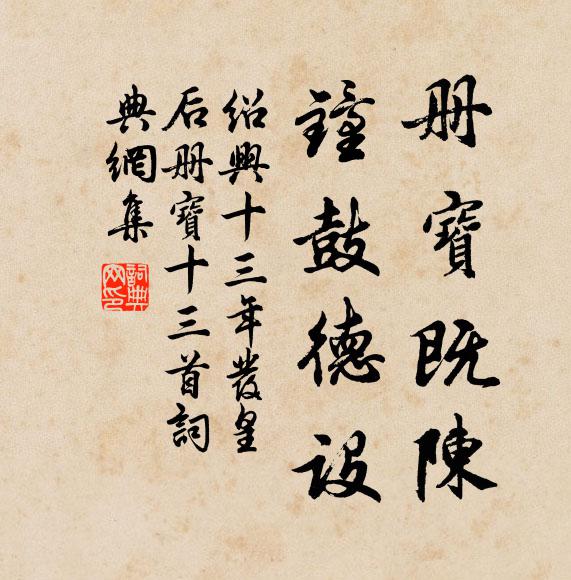 册寶既陳
鐘鼓德設
紹興十三年發皇
后册寶十三首詞
典網集
詞典網印